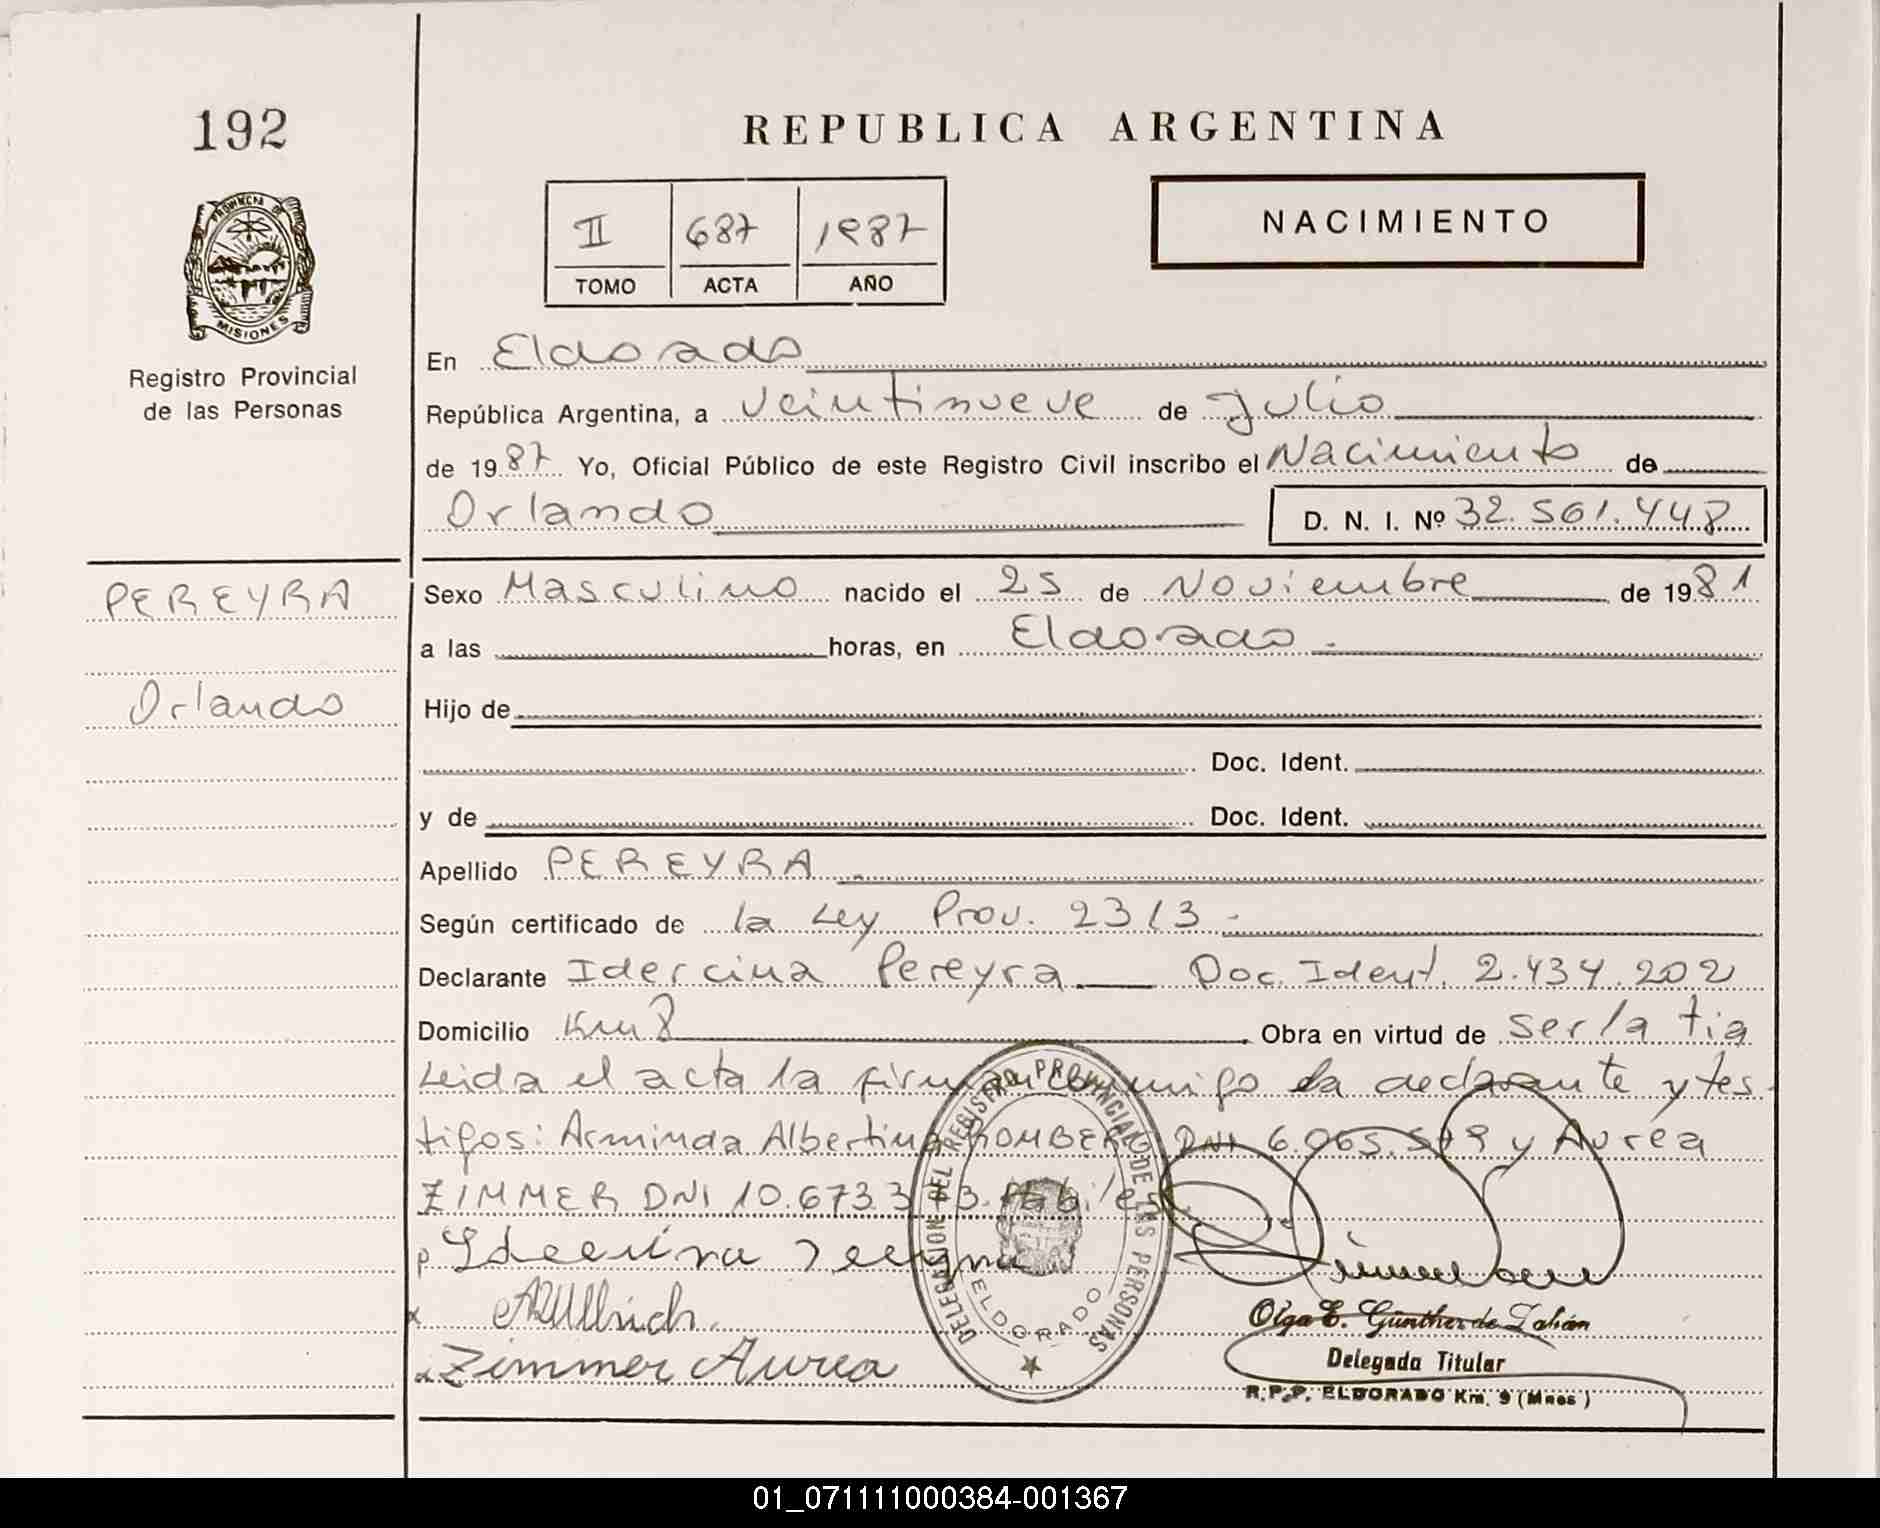 192
REPUBLICA ARGENTINA
PROVINCIA DE
MISIONES
Registro Provincial
de las Personas
II 687 1987
TOMO ACTA AÑO
NACIMIENTO
En Eldorado
República Argentina, a veintinueve de Julio
de 1987 Yo, Oficial Público de este Registro Civil inscribo el Nacimiento de
Orlando D. N. I. Nº 32.561.448
PEREYRA
Orlando
Sexo Masculino nacido el 25 de Noviembre de 1981
a las horas, en Eldorado.
Hijo de
Doc. Ident.
y de Doc. Ident.
Apellido PEREYRA
Según certificado de la Ley Prov. 2313
Declarante Idercina Pereyra Doc. Ident. 2.434.202
Domicilio Km 8 Obra en virtud de ser la tia
Leida el acta la firman conmigo la declarante y tes-
tigos: Arminda Albertina DNI 6.065. y Aurea
ZIMMER DNI 10.673.3 3. Habiles
Pereyra
AUllrich.
Zimmer Aurea
DELEGACION DEL REGISTRO PROVINCIAL DE LAS PERSONAS
ELDORADO
Olga E. Günther de Zahán
Delegada Titular
R.P.P. ELDORADO Km. 9 (Mnes)
01_071111000384-001367